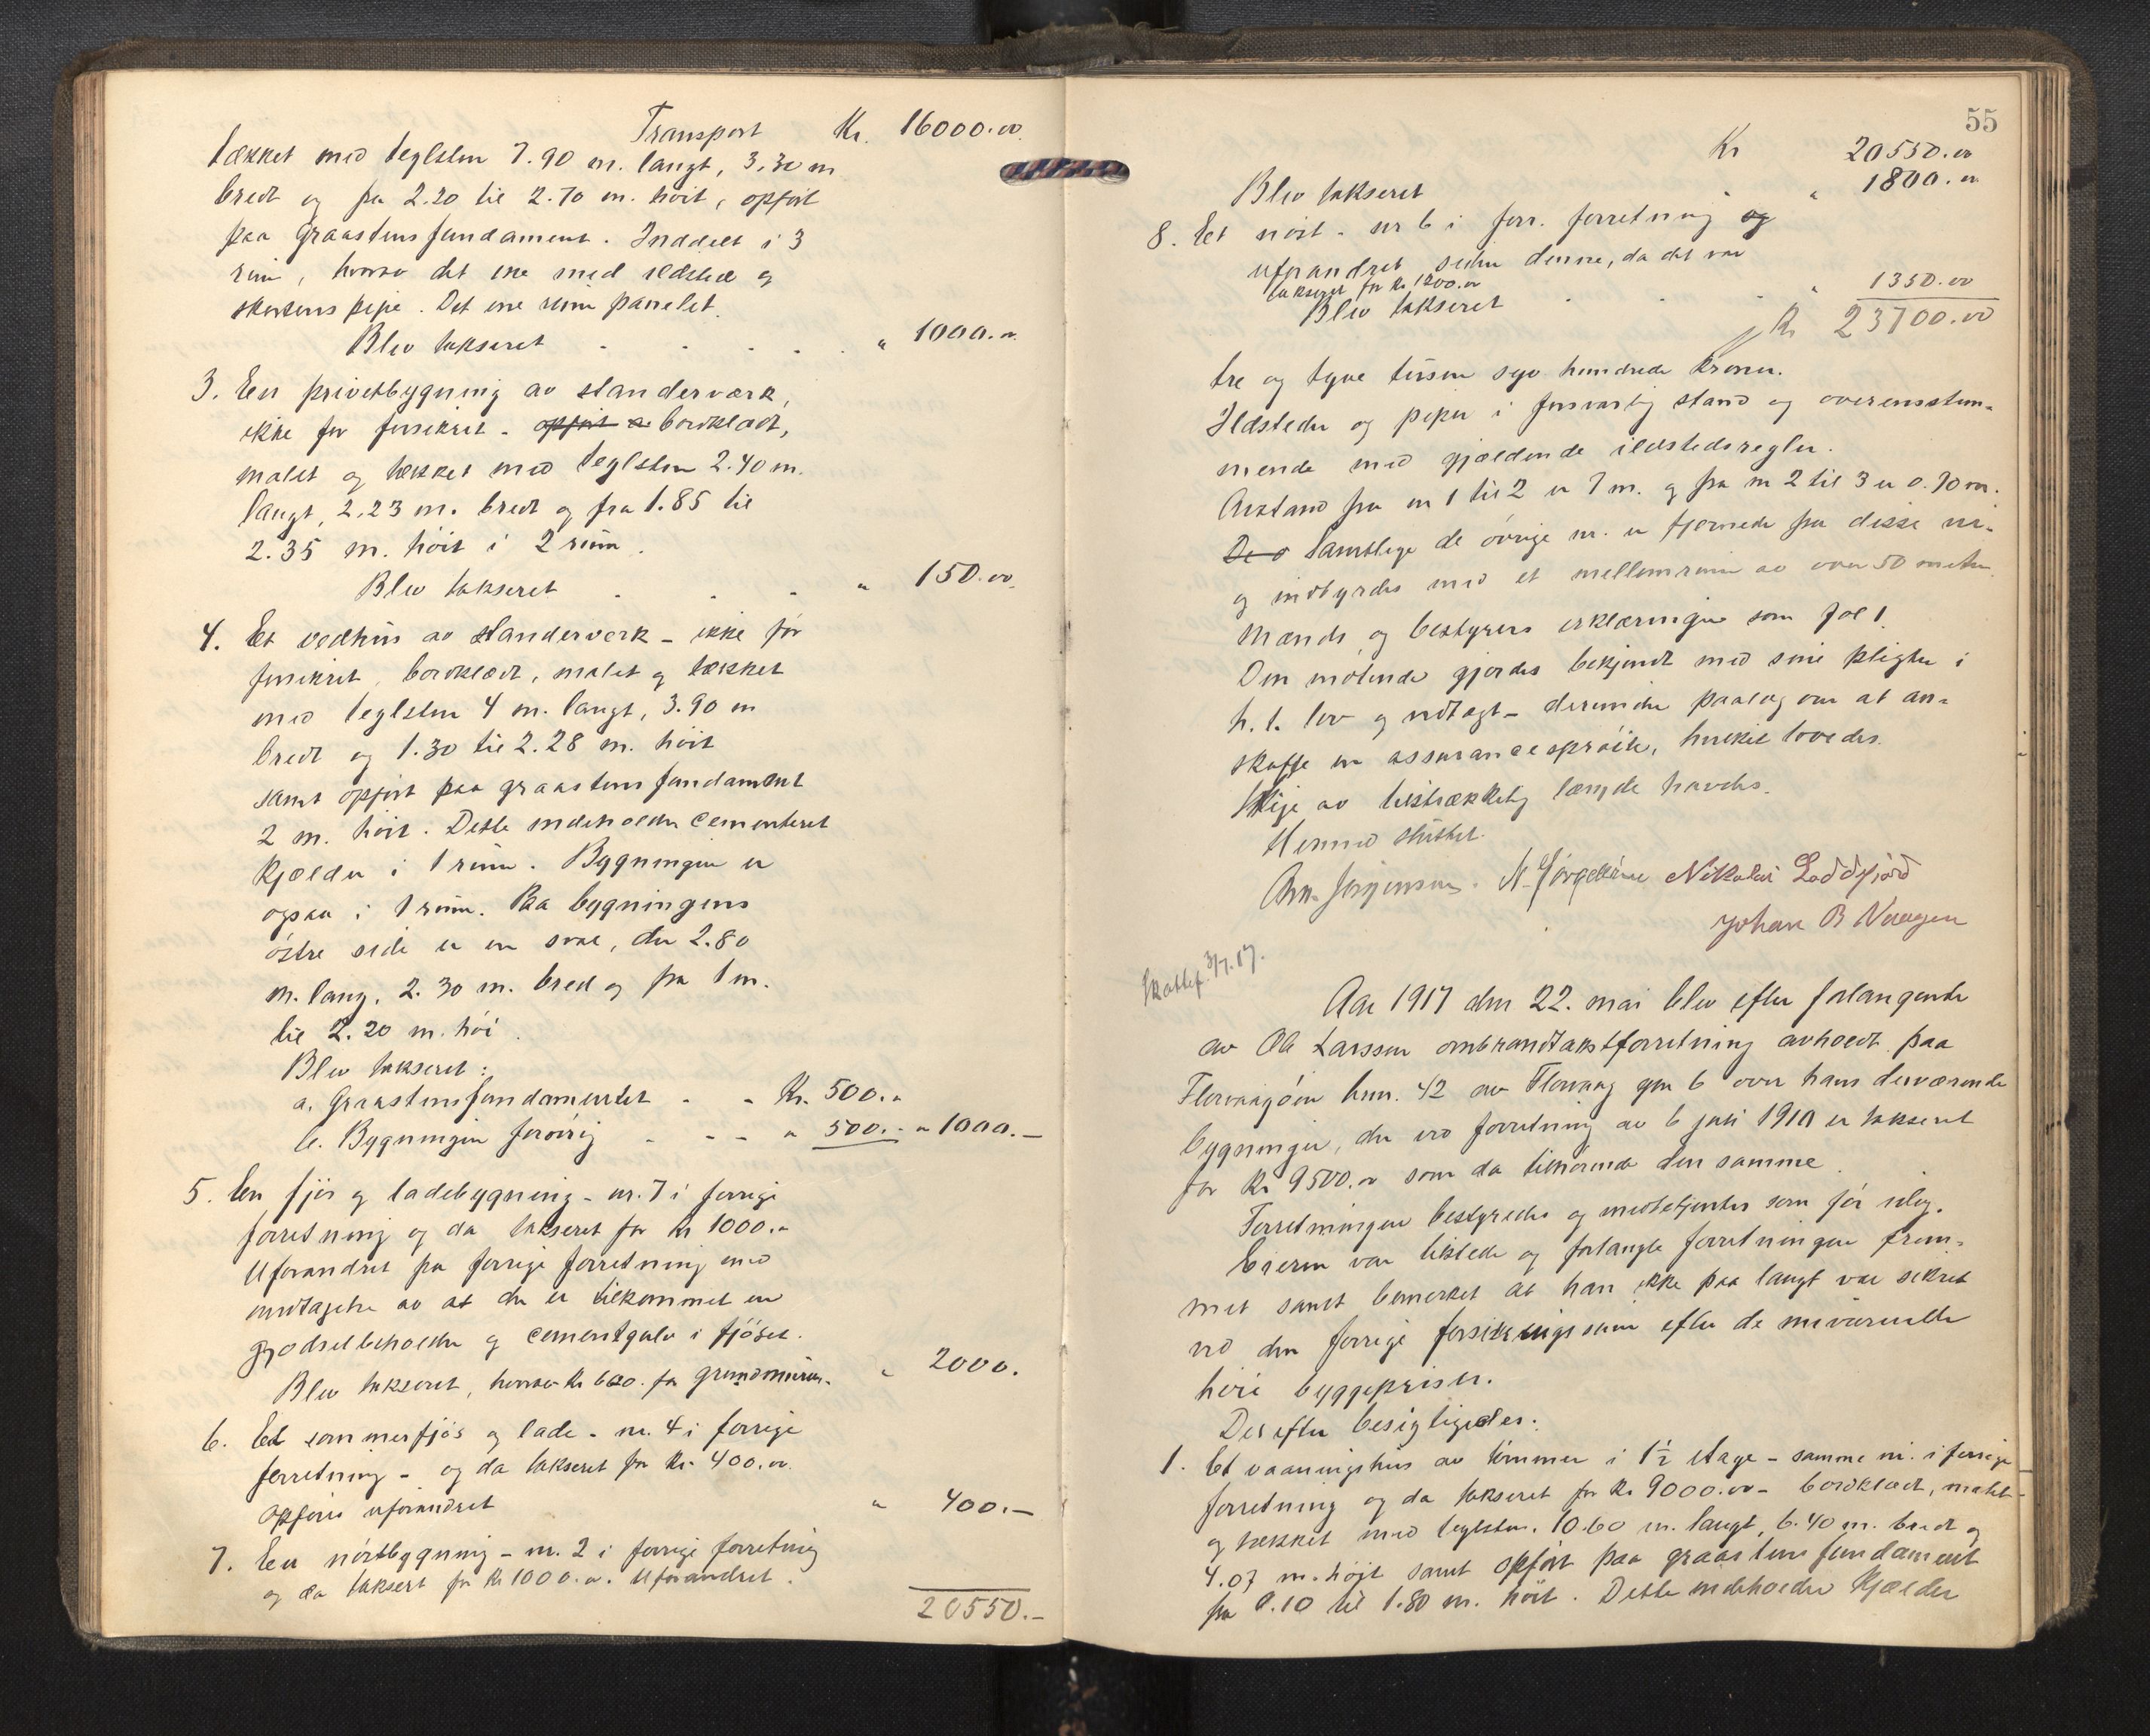 Transport Kr. 16000.00
tækket med teglsten 7.90 m. langt, 3.30 m
bredt og fra 2.20 til 2.70 m. høit, opført
paa graastensfundament. Inddelt i 3
rum, hvorav det ene med ildsted og
skorstenspipe. Det ene rum panelet.
Blev takseret - - - - „ 1000.00
3. En privetbygning av standerværk,
ikke før forsikret - opført a bordklædt,
malet og tækket med teglsten 2.40 m.
langt, 2.23 m. bredt og fra 1.85 til
2.35 m. høit i 2 rum.
Blev takseret - - - „ 150.00
4. Et vedhus av standerverk - ikke før
forsikret, bordklædt, malet og tækket
med teglsten 4 m. langt, 3.90 m
bredt og 1.30 til 2.28 m. høit
samt opført paa graastensfundament
2 m. høit. Dette indeholder cementeret
kjælder i 1 rum. Bygningen er
ogsaa i 1 rum. Paa bygningens
østre side er en sval, der 2.80
m. lang, 2.30 m. bred og fra 1 m.
til 2.20 m. høi.
Blev takseret:
a. Graastensfundamentet - - Kr. 500.„
b. Bygningen forøvrig - - - „ 500.- „ 1000.—
5. En fjøs og ladebygning - nr. 7 i forrige
forretning og da takseret for kr 1000.„
Uforandret fra forrige forretning med
undtagelse av at der er tilkommet en
gjødselbeholder og cementgulv i fjøset.
Blev takseret, hvorav kr 600. for grundmuren. „ 2000.
6. Et sommerfjøs og lade - nr. 4 i forrige
forretning - og da takseret for kr. 400.00.
opføres uforandret „ 400.—
7. En nøstbygning - nr. 2 i forrige forretning
og da taksert for kr 1000.00. Uforandret.
20550.—
55
Kr 20550.00
Blev takseret - „ 1800.00
8. Et nøst - nr 6 i forr. forretning og
uforandret siden denne, da det var
takseret for kr 1200.00
Blev takseret - - - „ 1350.00
Kr 23700.00
tre og tyve tusen syv hundrede kroner.
Ildsteder og piper i forsvarlig stand og overensstem-
mende med gjældende ildstedsregler.
Avstand fra nr 1 til 2 er 7 m. og fra nr 2 til 3 er 0.70 m.
De ø Samtlige de øvrige nr. er fjernede fra disse nr.
og indbyrdes med et mellemrum av over 50 meter.
Mænds og bestyrers erklæringer som fol 1.
Den møtende gjordes bekjendt med sine pligter i
h. t. lov og vedtægt - derunder paalæg om at an-
skaffe en assurancesprøite, hvilket lovedes.
Stige av tilstrækkelig længde havdes.
Hermed sluttet.
Chr. Jørgensen. N. Nikolai Loddefjord
Johan B Vaagen
Skattef. 3/7.17.
Aar 1917 den 22. mai blev efter forlangende
av Ole Larssen ombrandtakstforretning avholdt paa
Florvaagøen bnr. 42 av Florvaag gnr 6 over hans derværende
bygninger, der ved forretning av 6 juli 1910 er takseret
for kr 9500.00 som da tilhørende den samme.
Forretningen bestyredes og medbetjentes som før idag.
Eieren var tilstede og forlangte forretningen frem-
met samt bemerket at han ikke paa langt var sikret
ved den forrige forsikringssum efter de nuværende
høie byggepriser.
Derefter besigtigedes:
1. Et vaaningshus av tømmer i 1½ etage - samme nr. i forrige
forretning og da takseret for kr 9000.00 - bordklædt, malet
og tækket med teglsten. 10.60 m. langt, 6.40 m. bredt og
4.07 m. højt samt opført paa graastensfundament
fra 0.10 til 1.80 m. høit. Dette indeholder kjælder